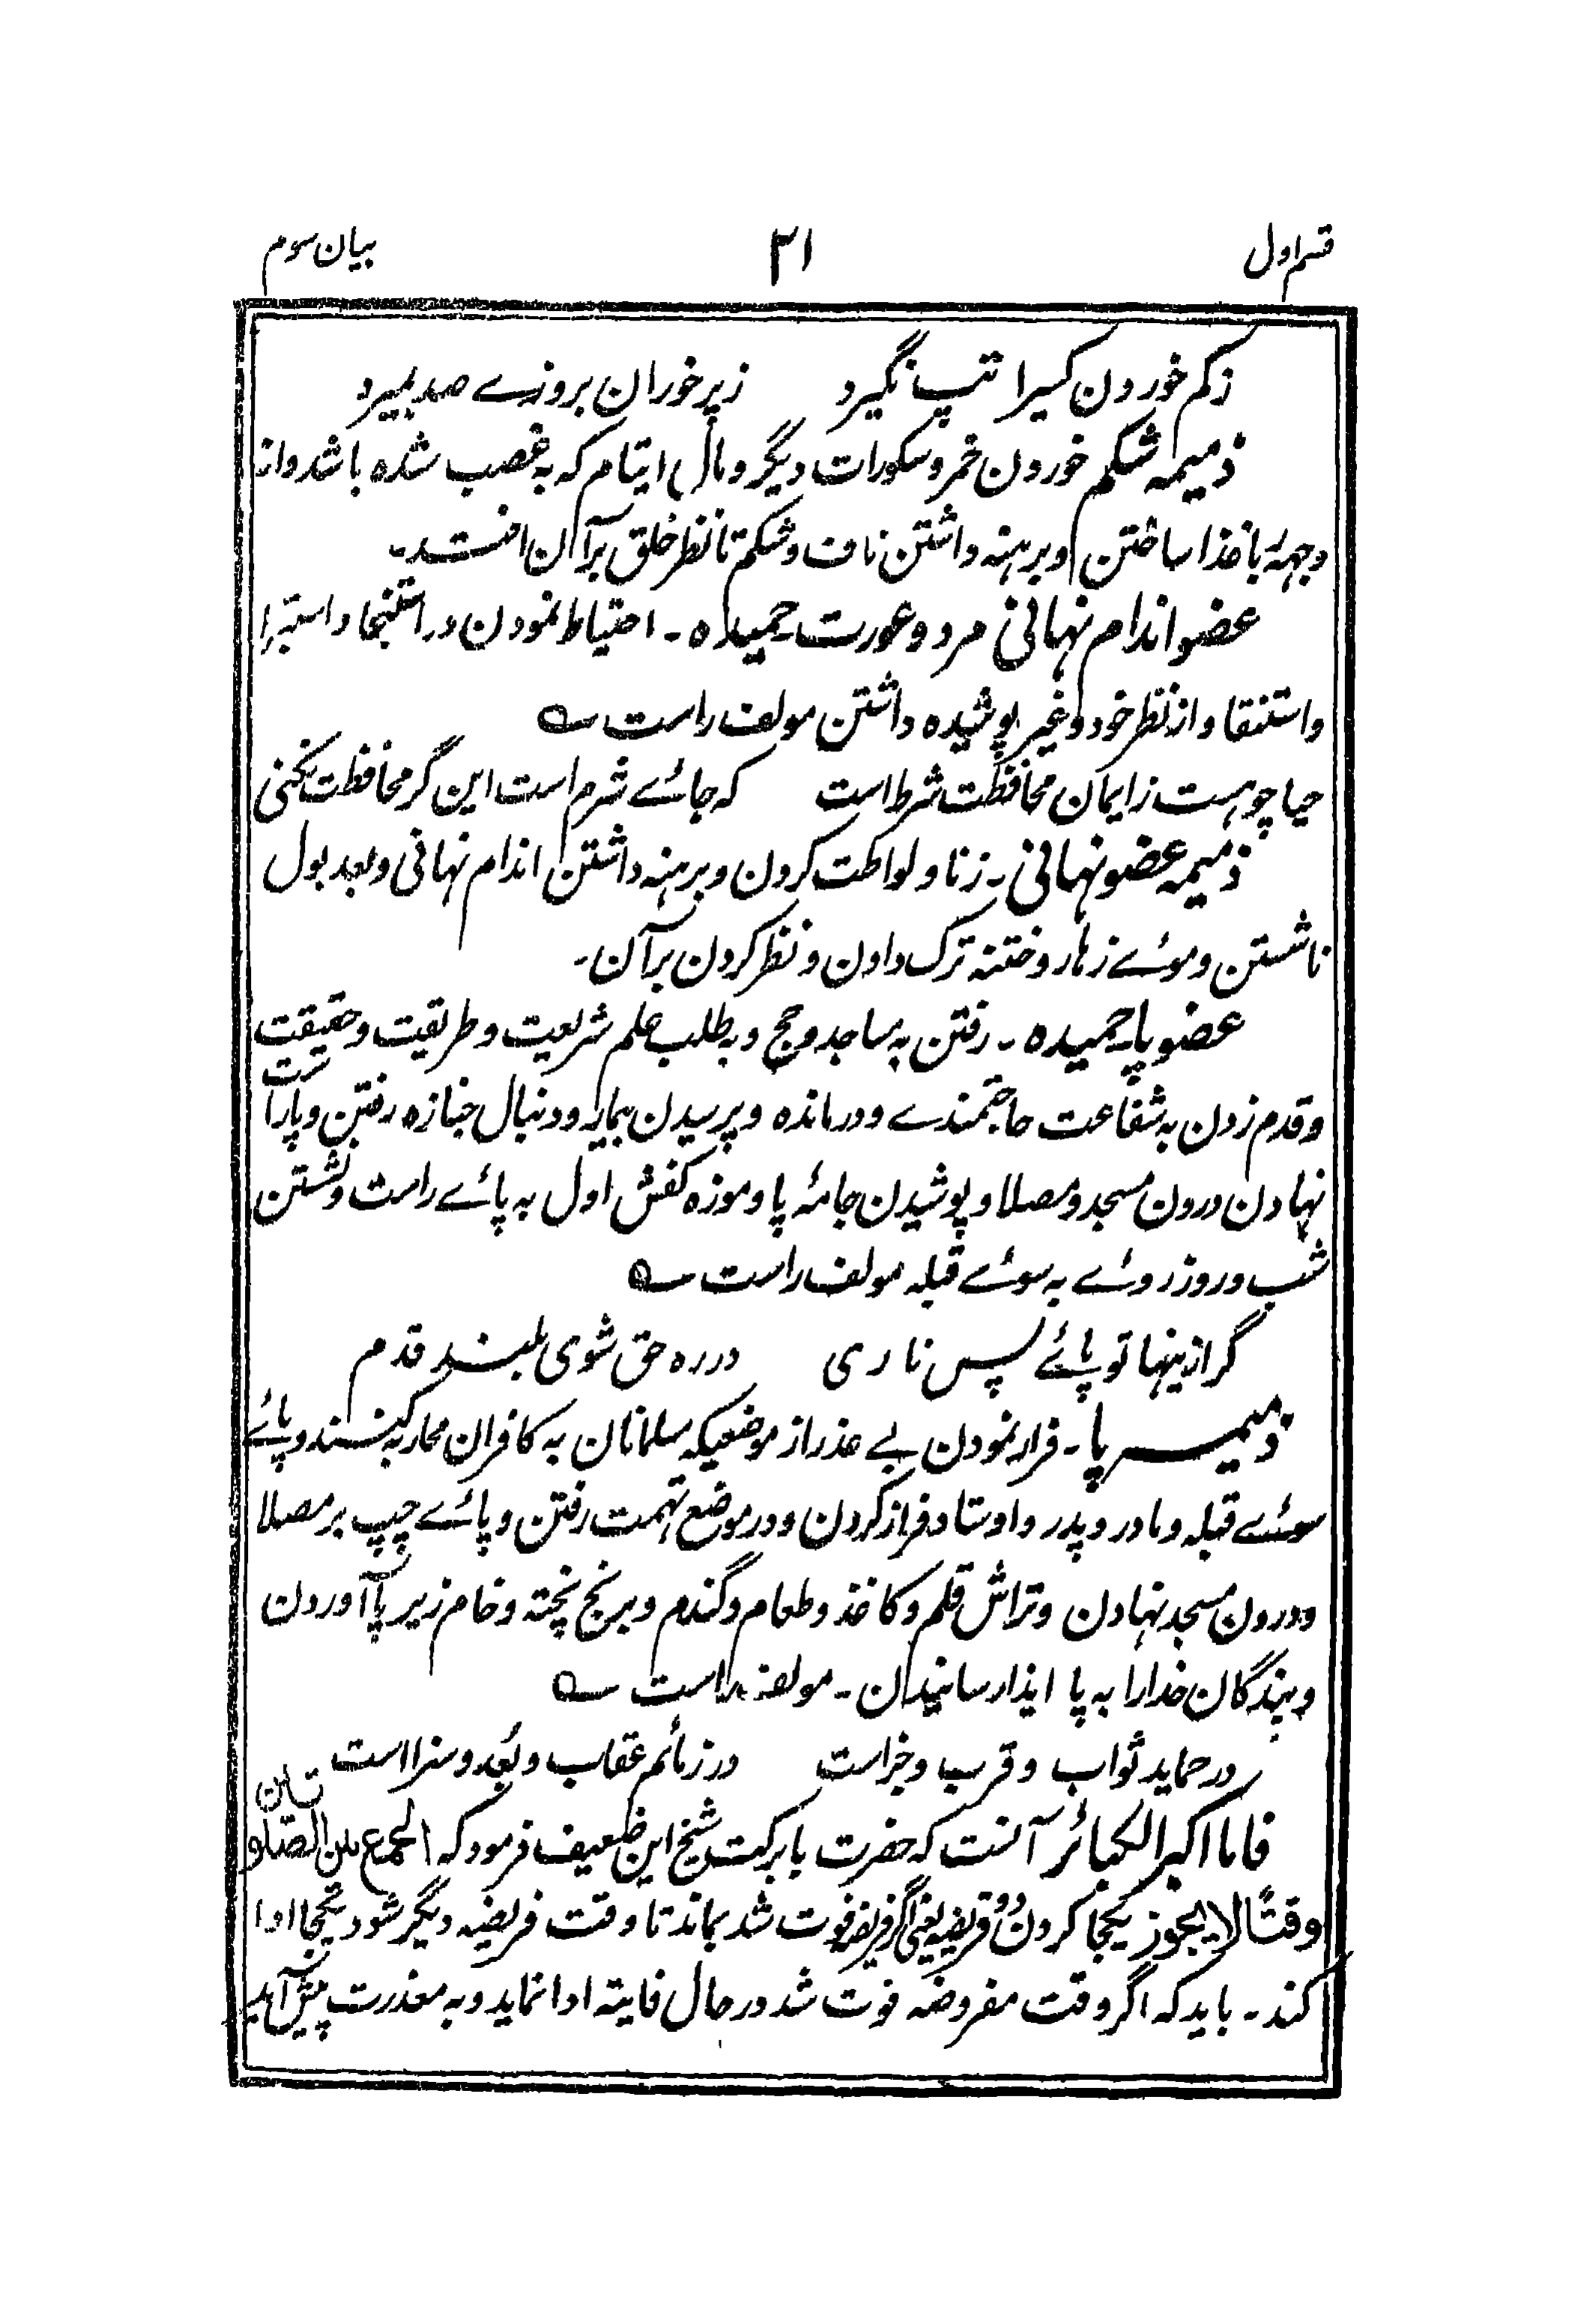 قسم اول ۳۱ بیان سوم
زکم خوردن کسیرا تپ نگیرد زپر خوران بروزے صد بمیرد
ذمیمہ شکم خوردن خمر و سکورات دیگر و مال ایتام کہ بہ غصب شدہ باشد واز
وجہہ باغذا ساختن و برہنہ داشتن ناف و شکم تا نظر خلق برآن افتد۔
عضو اندام نہانی مرد و عورت حمیدہ۔ احتیاط نمودن در استنجا و استبرا
و استنقا و از نظر خود و غیر پوشیدہ داشتن مولف راست ؎
حیا چو ہست ز ایمان محافظت شرط است کہ جائے شرم است این گر محافظت نکنی
ذمیمہ عضو نہانی۔ زنا و لواطت کردن و برہنہ داشتن اندام نہانی و بعد بول
ناشستن و موئے زہار و ختنہ ترک دادن و نظر کردن برآن۔
عضو پا۔ حمیدہ۔ رفتن بہ مساجد و حج و بہ طلب علم شریعت و طریقت و حقیقت
و قدم زدن بہ شفاعت حاجتمندے و درماندہ و پرسیدن بیمار و دنبال جنازہ رفتن و پا راست
نہادن درون مسجد و مصلا و پوشیدن جامۂ پا و موزہ کفش اول بہ پائے راست و نشستن
شب و روز روئے بہ سوئے قبلہ مولف راست ؎
گر ازینہا تو پائے پس ناری در رہ حق شوی بلند قدم
ذمیمہ پا۔ فرار نمودن بے عذر از موضعیکہ مسلمانان بہ کافران محاربہ کنند و پائے
سوئے قبلہ و مادر و پدر و اوستاد فراز کردن و در موضع تہمت رفتن و پائے چپ بر مصلا
و درون مسجد نہادن و تراش قلم و کاغذ و طعام و گندم و برنج پختہ و خام زیر پا آوردن
و بندگان خدا را بہ پا ایذا رسانیدن۔ مولف راست ؎
در حماید ثواب و قرب و جزاست در ذمائم عقاب و بُعد و سزا است
فاما اکبر الکبائر آنست کہ حضرت بابرکت شیخ این ضعیف فرمود کہ الجمع بین الصلوتین
وقتًا لا یجوز یکجا کردن دو فریضہ یعنی اگر فریضہ فوت شد بماند تا وقت فریضہ دیگر شود یکجا ادا
کند۔ باید کہ اگر وقت مفروضہ فوت شد در حال فایتہ ادا نماید و بہ معذرت پیش آید